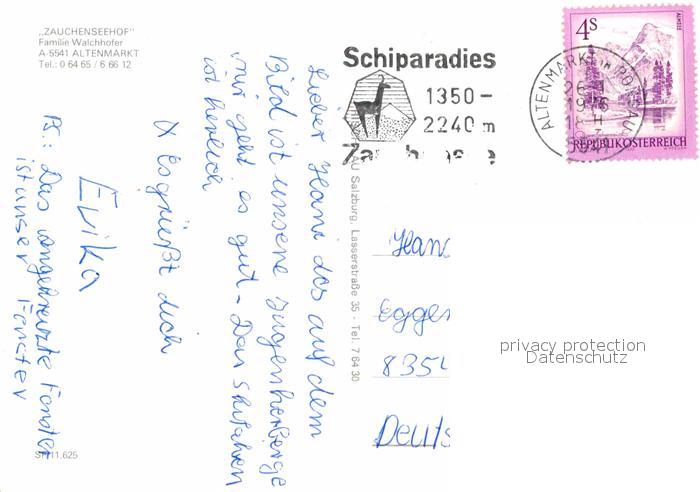 „ZAUCHENSEEHOF"
Familie Walchhofer
A-5541 ALTENMARKT
Tel.: 0 64 65 / 6 66 12
Lieber Hans das auf dem
Bild ist unsene Jugenherberge
mir geht es gut - Das Skifahren
ist herlich
X Es grüßt dich
Erika
PS: Das angekreuzte Fenster
ist unser
Fenster
SP 11.625
AU Salzburg, Lasserstraße 35 - Tel. 7 64 30
Schiparadies
1350 –
2240 m
ALTENMARKT IM PONGAU
5541
4 S
ALMSEE
REPUBLIK ÖSTERREICH
Hans
Egger
8354
Deuts
privacy protection
Datenschutz